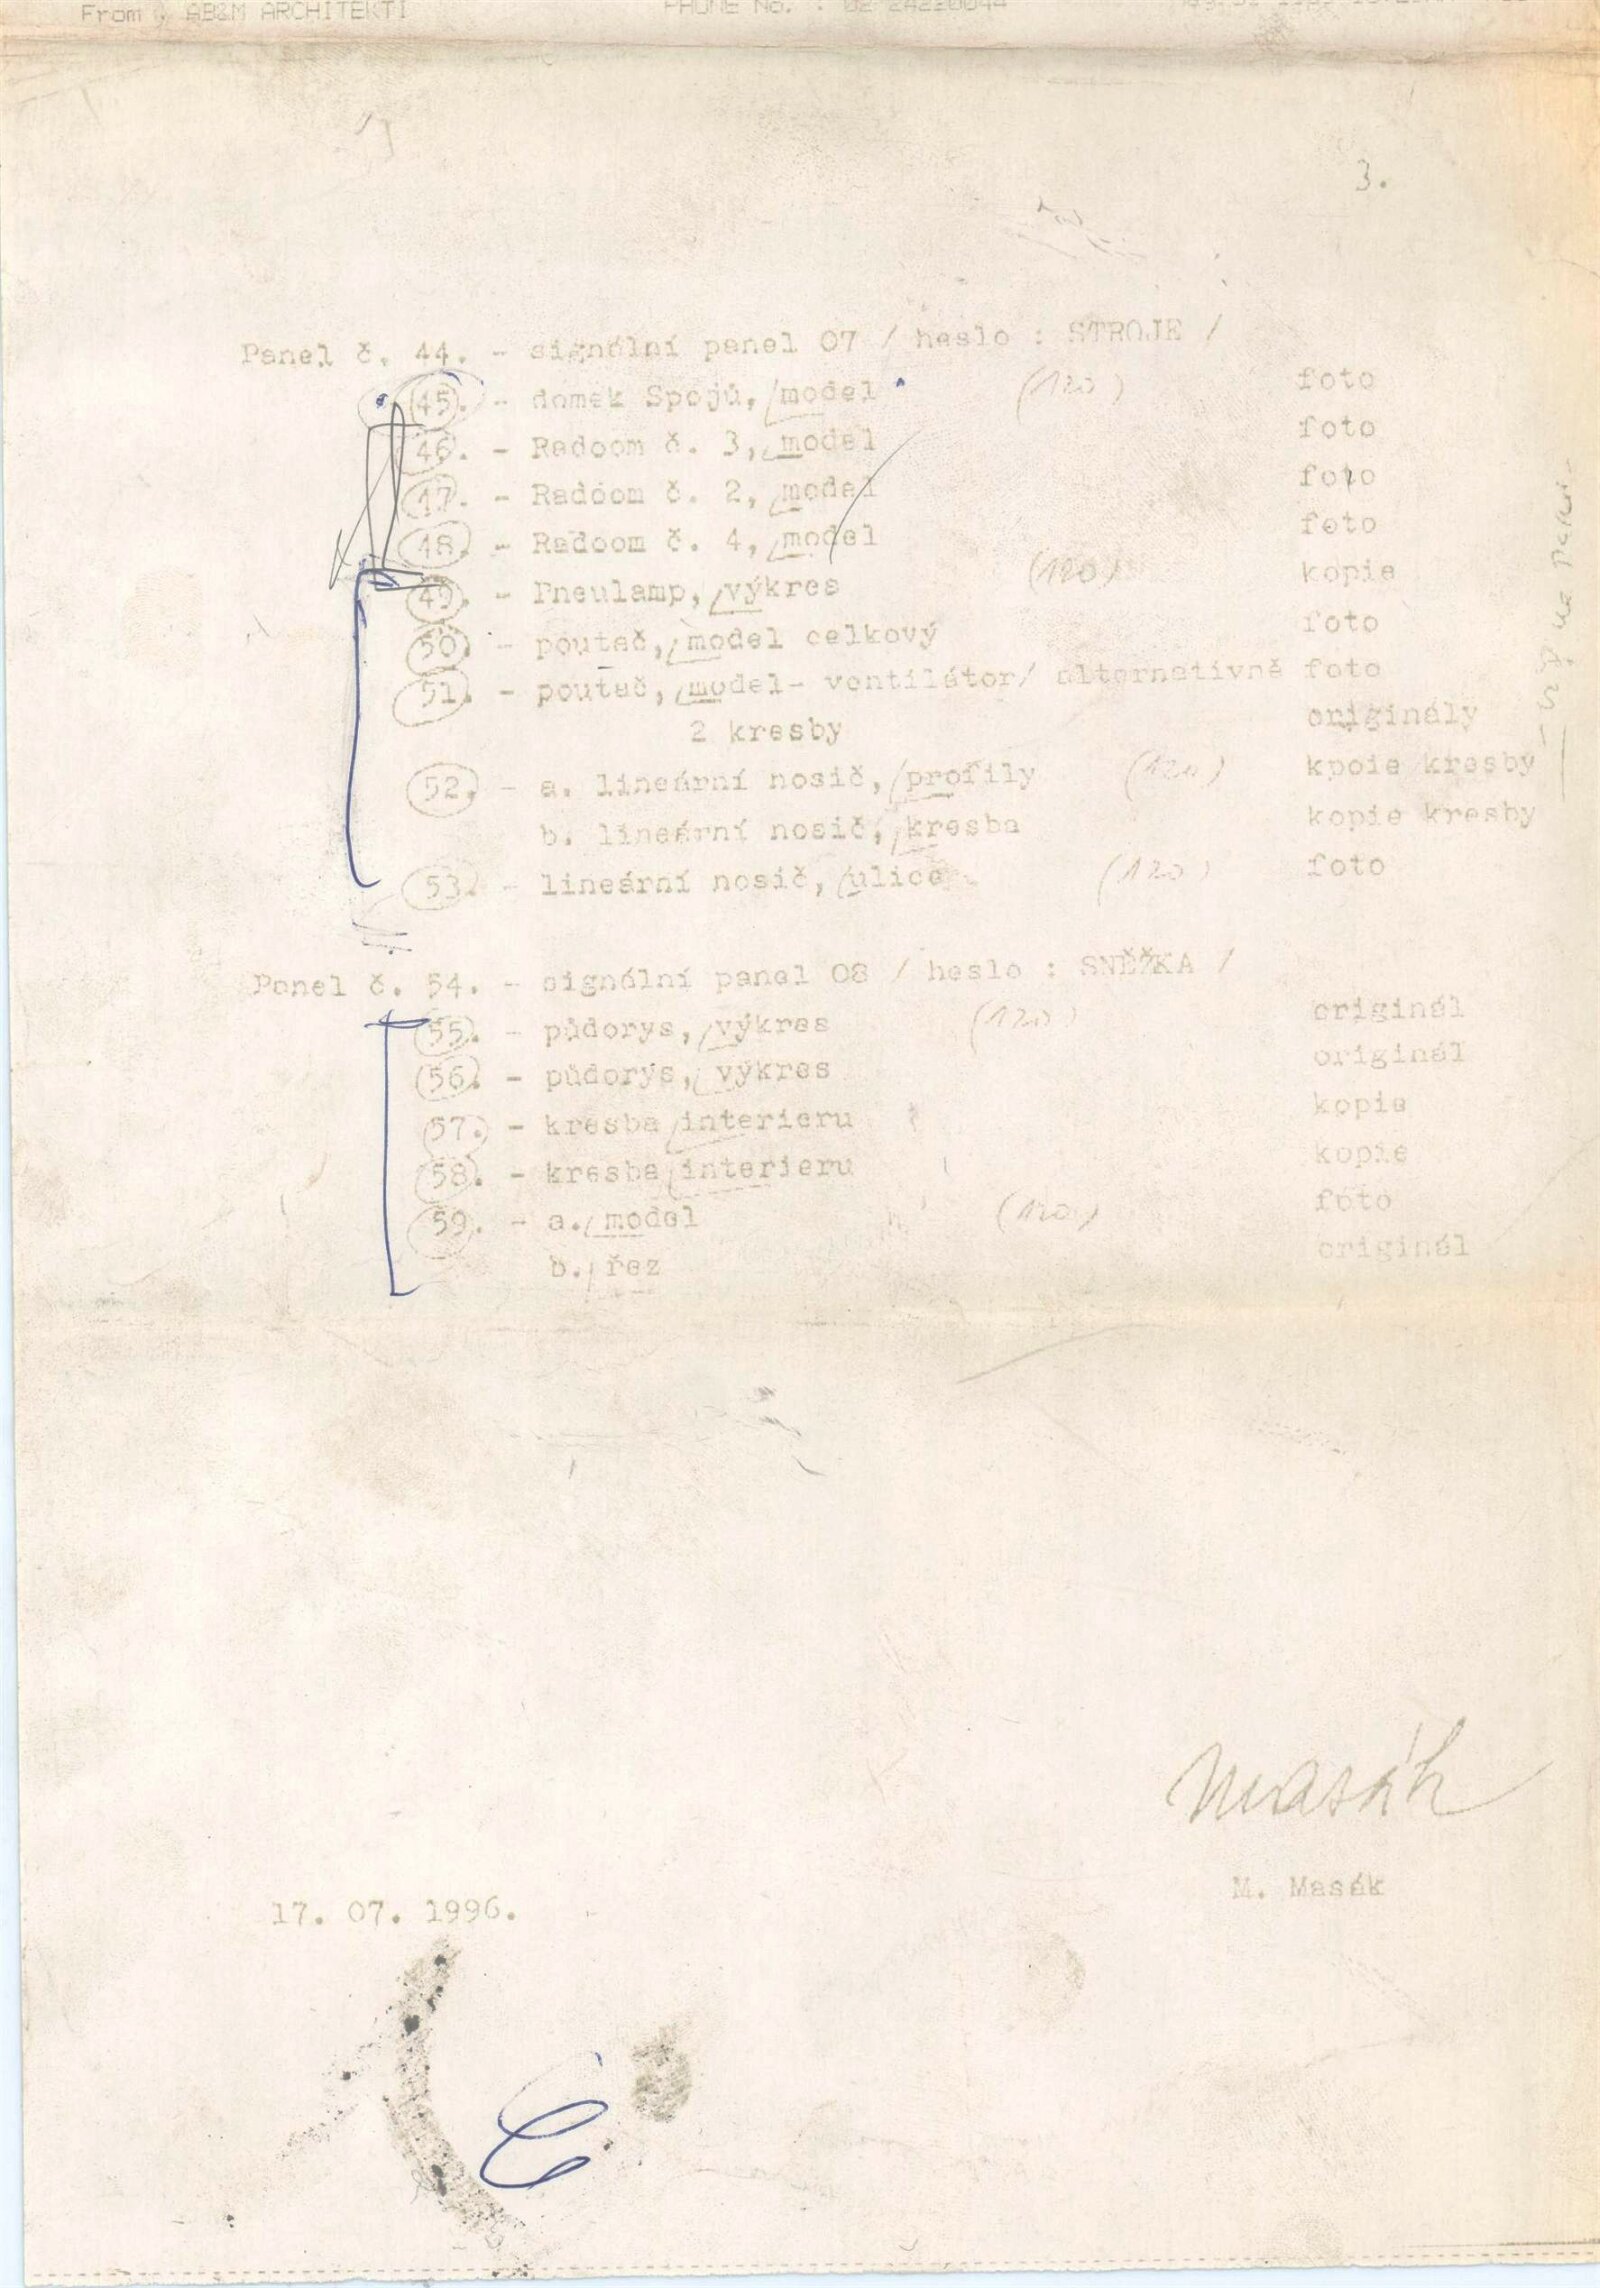 From : AB&M ARCHITEKTI PHONE No. : 02 24220044
3.
Panel č. 44. - signální panel 07 / heslo : STROJE /
45. - domek Spojů, model (120) foto
46. - Radoom č. 3, model foto
47. - Radoom č. 2, model foto
48. - Radoom č. 4, model foto
49. - Pneulamp, výkres (120) kopie
50. - poutač, model celkový foto
51. - poutač, model- ventilátor/ alternativně foto
2 kresby originály
52. - a. lineární nosič, profily (120) kpoie kresby
b. lineární nosič, kresba kopie kresby
53. - lineární nosič, ulice (120) foto
Panel č. 54. - signální panel 08 / heslo : SNĚŽKA /
55. - půdorys, výkres (120) originál
56. - půdorys, výkres originál
57. - kresba interieru kopie
58. - kresba interieru kopie
59. - a. model (120) foto
b. řez originál
Masák
M. Masák
17. 07. 1996.